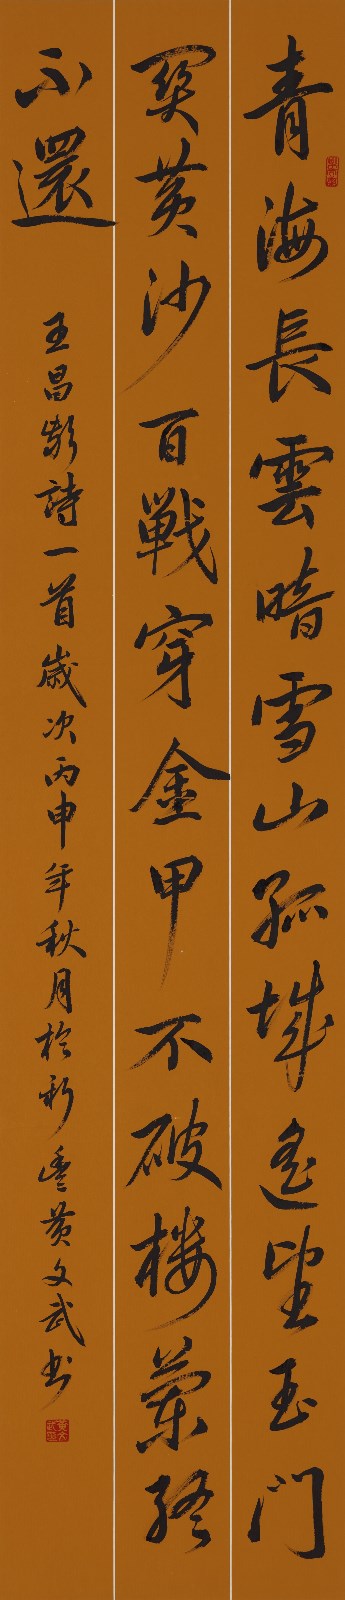 青海長雲暗雪山孤城遙望玉門
關黃沙百戰穿金甲不破樓蘭終
不還
王昌齡詩一首歲次丙申年秋月於新豐黃文武書